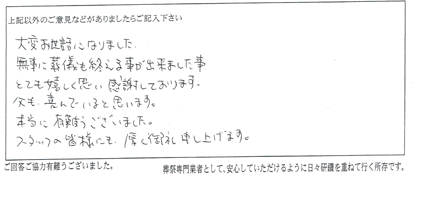 上記以外のご意見などがありましたらご記入下さい
大変お世話になりました.
無事に葬儀も終える事が出来ました事
とても嬉しく思い感謝しております.
父も.喜んでいると思います。
本当に有難うございました。
スタッフの皆様にも.厚く御礼申し上げます。
ご回答ご協力有難うございました。
葬祭専門業者として、安心していただけるように日々研鑽を重ねて行く所存です。